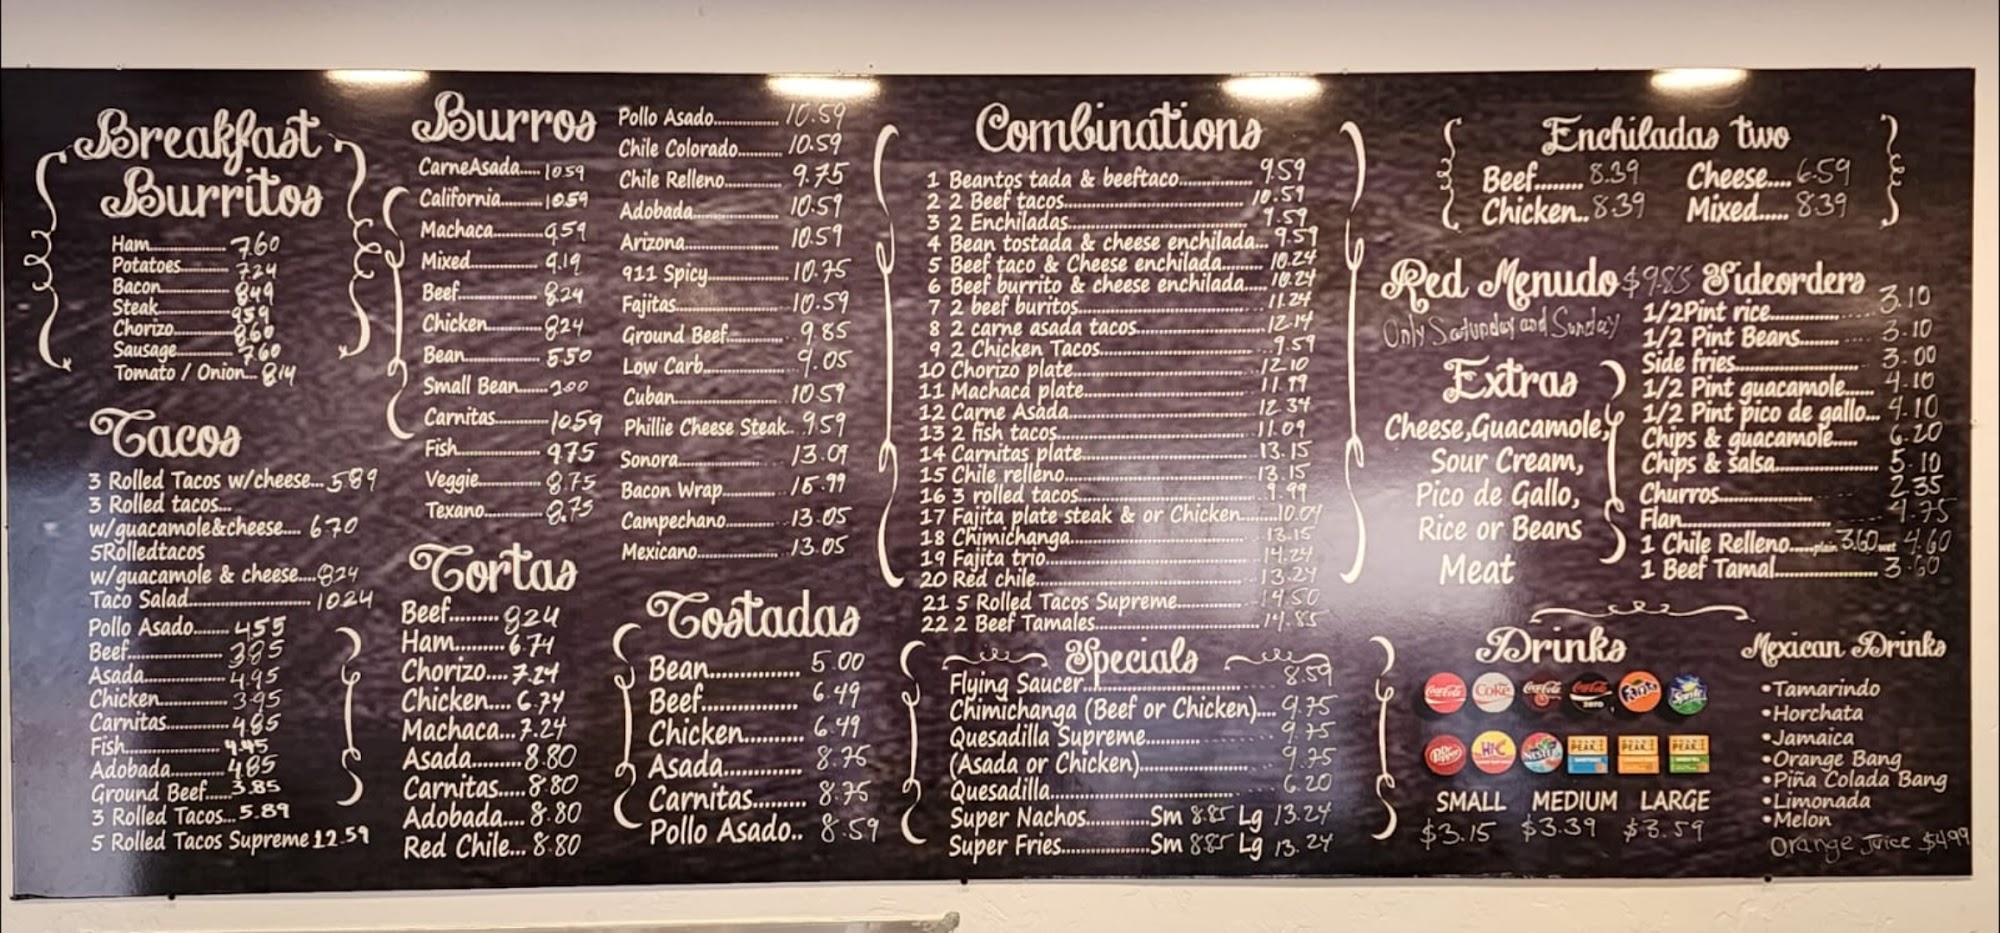 Breakfast
Burritos
Ham 7.60
Potatoes 7.24
Bacon 8.49
Steak 9.59
Chorizo 8.60
Sausage 7.60
Tomato / Onion... 8.14
Tacos
3 Rolled Tacos w/cheese... 5.89
3 Rolled tacos...
w/guacamole&cheese.... 6.70
5Rolledtacos
w/guacamole & cheese.... 8.24
Taco Salad 10.24
Pollo Asado 4.55
Beef 3.85
Asada 4.95
Chicken 3.95
Carnitas 4.85
Fish 4.45
Adobada 4.85
Ground Beef 3.85
3 Rolled Tacos... 5.89
5 Rolled Tacos Supreme 12.59
Burros
CarneAsada..... 10.59
California 10.59
Machaca 9.59
Mixed 9.19
Beef 8.24
Chicken 8.24
Bean 5.50
Small Bean 3.00
Carnitas 10.59
Fish 9.75
Veggie 8.75
Texano 8.75
Pollo Asado 10.59
Chile Colorado 10.59
Chile Relleno 9.75
Adobada 10.59
Arizona 10.59
911 Spicy 10.75
Fajitas 10.59
Ground Beef 9.85
Low Carb 9.05
Cuban 10.59
Phillie Cheese Steak.. 9.59
Sonora 13.09
Bacon Wrap 15.99
Campechano 13.05
Mexicano 13.05
Tortas
Beef 8.24
Ham 6.74
Chorizo.... 7.24
Chicken.... 6.74
Machaca... 7.24
Asada 8.80
Carnitas..... 8.80
Adobada.... 8.80
Red Chile... 8.80
Tostadas
Bean 5.00
Beef 6.49
Chicken 6.49
Asada 8.75
Carnitas 8.75
Pollo Asado.. 8.59
Combinations
1 Beantos tada & beeftaco 9.59
2 2 Beef tacos 10.59
3 2 Enchiladas 9.59
4 Bean tostada & cheese enchilada... 9.59
5 Beef taco & Cheese enchilada 10.24
6 Beef burrito & cheese enchilada..... 10.24
7 2 beef buritos 11.24
8 2 carne asada tacos 12.14
9 2 Chicken Tacos 9.59
10 Chorizo plate 12.10
11 Machaca plate 11.99
12 Carne Asada 12.34
13 2 fish tacos 11.09
14 Carnitas plate 13.15
15 Chile relleno 13.15
16 3 rolled tacos 9.99
17 Fajita plate steak & or Chicken 10.04
18 Chimichanga 13.15
19 Fajita trio 14.24
20 Red chile 13.24
21 5 Rolled Tacos Supreme 14.50
22 2 Beef Tamales 14.85
Specials
Flying Saucer 8.59
Chimichanga (Beef or Chicken).... 9.75
Quesadilla Supreme 9.75
(Asada or Chicken) 9.75
Quesadilla 6.20
Super Nachos Sm 8.85 Lg 13.24
Super Fries Sm 8.85 Lg 13.24
Enchiladas two
Beef 8.39 Cheese.... 6.59
Chicken.. 8.39 Mixed..... 8.39
Red Menudo $9.85
Only Saturday and Sunday
Extras
Cheese,Guacamole,
Sour Cream,
Pico de Gallo,
Rice or Beans
Meat
Sideorders
1/2Pint rice 3.10
1/2 Pint Beans 3.10
Side fries 3.00
1/2 Pint guacamole 4.10
1/2 Pint pico de gallo... 4.10
Chips & guacamole..... 6.20
Chips & salsa 5.10
Churros 2.35
Flan 4.75
1 Chile Relleno.....plain 3.60 wet 4.60
1 Beef Tamal 3.60
Drinks
Coca-Cola Coke Coca-Cola Coca-Cola zero Fanta Sprite
Dr Pepper Hi-C NESTEA PEAK PEAK PEAK
SMALL MEDIUM LARGE
$3.15 $3.39 $3.59
Mexican Drinks
•Tamarindo
•Horchata
•Jamaica
•Orange Bang
•Piña Colada Bang
•Limonada
•Melon
Orange Juice $4.99